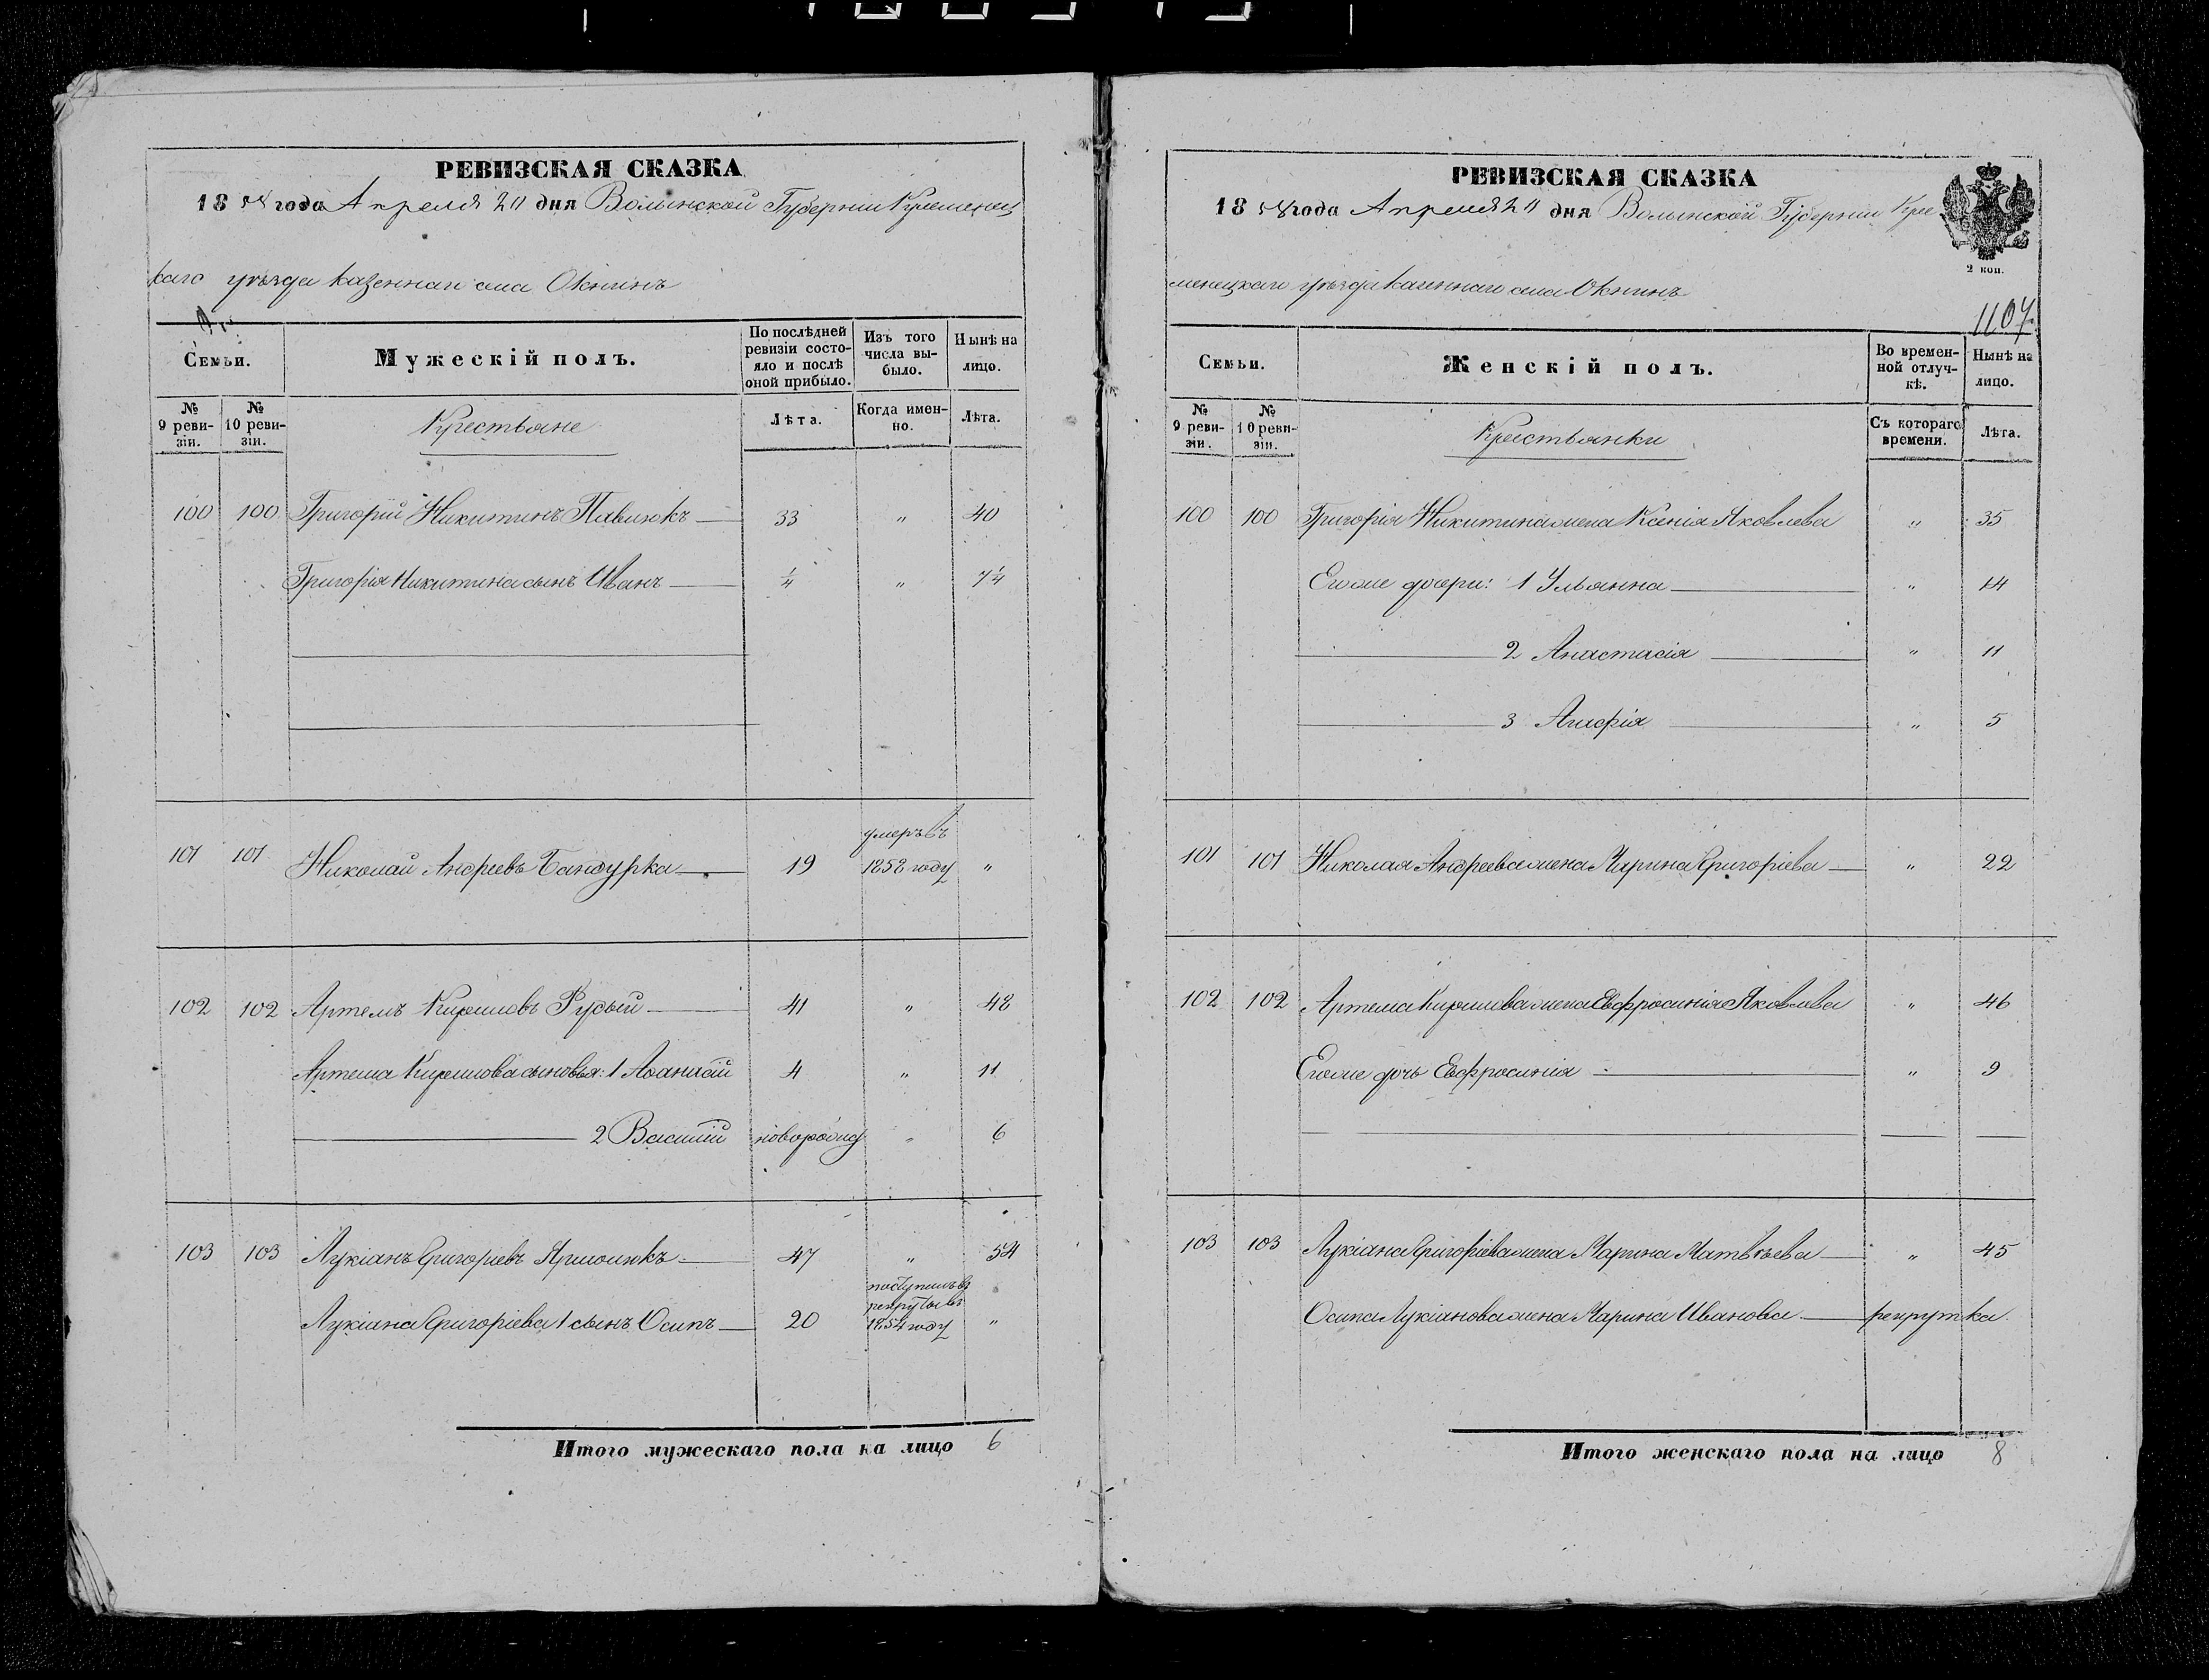 РЕВИЗСКАЯ СКАЗКА
1858 года Апреля 20 дня Волынской Губернии Кременец
каго уѣзда казеннаго села Окнинъ
Семьи.
Мужескій полъ.
По послѣдней ревизіи состояло и послѣ оной прибыло.
Изъ того числа выбыло.
Нынѣ на лицо.
№ 9 ревизіи.
№ 10 ревизіи.
Крестьяне
Лѣта.
Когда именно.
Лѣта.
100 100 Григорій Никитинъ Павлюкъ 33 " 40
Григорія Никитина сынъ Иванъ ¼ " 7¼
101 101 Николай Андреевъ Бандурка 19 умеръ въ 1852 году "
102 102 Артемъ Кириловъ Рудый 41 " 48
Артема Кирилова сыновья: 1 Аѳанасій 4 " 11
2 Василій новорожд " 6
103 103 Лукіанъ Григорьевъ Ярмолюкъ 47 " 54
Лукіана Григоріева 1 сынъ Осипъ 20 поступилъ въ рекруты въ 1854 году "
Итого мужескаго пола на лицо 6
РЕВИЗСКАЯ СКАЗКА
1858 года Апреля 20 дня Волынской Губернии Кре
2 коп.
менецкаго уѣзда казеннаго села Окнинъ
1107.
Семьи.
Женскій полъ.
Во временной отлучкѣ.
Нынѣ на лицо.
№ 9 ревизіи.
№ 10 ревизіи.
Крестьянки
Съ котораго времени.
Лѣта.
100 100 Григорія Никитина жена Ксенія Яковлева " 35
Его же дочери: 1 Ульянна " 14
2 Анастасія " 11
3 Агафія " 5
101 101 Николая Андреева жена Марина Григоріева " 22
102 102 Артема Кирилова жена Евфросинія Яковлева " 46
Его же дочь Евфросинія " 9
103 103 Лукіана Григоріева жена Марина Матвѣева " 45
Осипа Лукіанова жена Марина Иванова рекрутка.
Итого женскаго пола на лицо 8